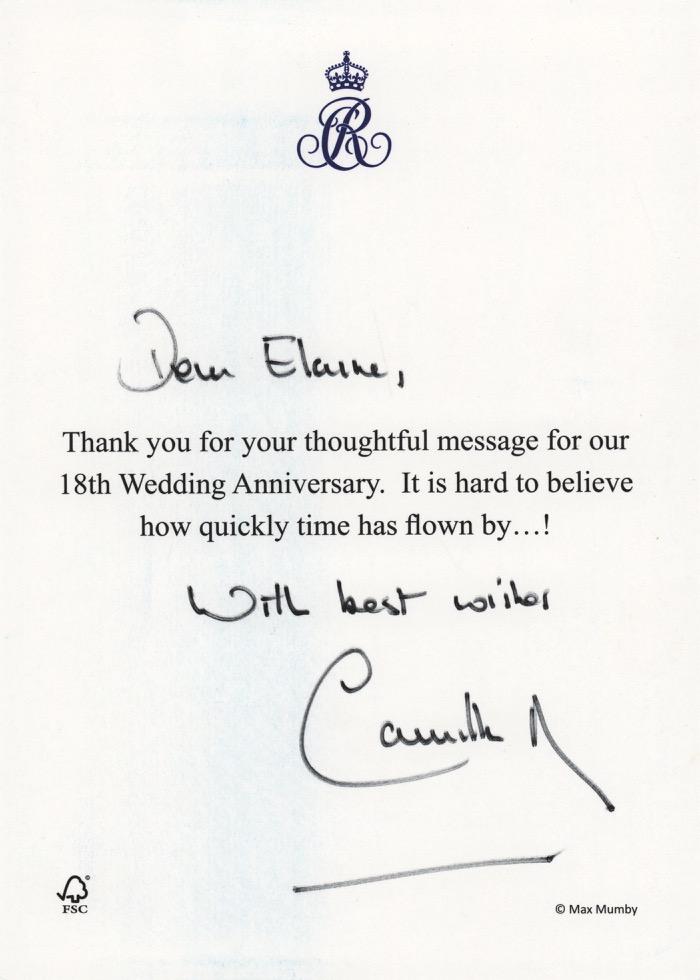 Dear Elaine,
Thank you for your thoughtful message for our
18th Wedding Anniversary. It is hard to believe
how quickly time has flown by...!
With best wishes
Camilla R
FSC
© Max Mumby